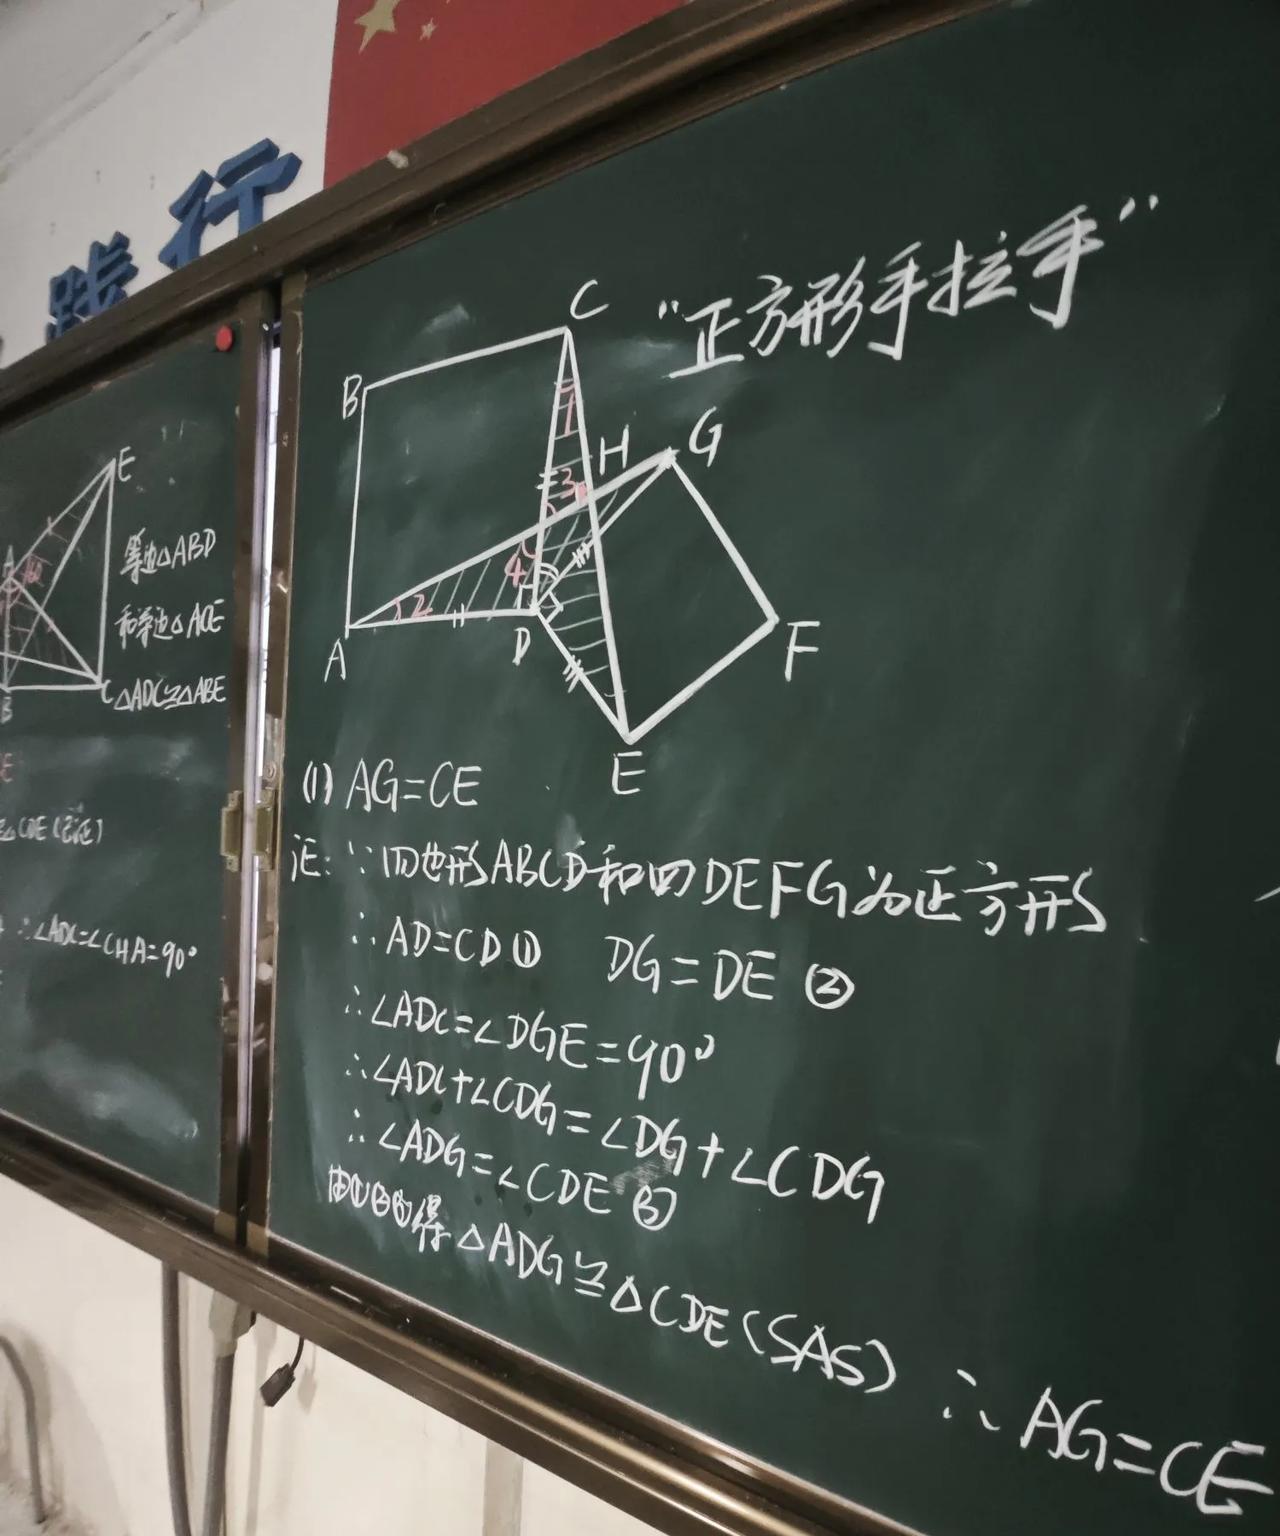 践行
E
A
B
C
等边△ABD
和等边△ACE
△ADC≌△ABE
E
△CDE(已证)
∴∠ADC=∠CHA=90°
"正方形手拉手"
C
B
1
H
G
3
4
2
A
D
F
E
(1) AG=CE
证:∵四边形ABCD和四DEFG为正方形
∴AD=CD① DG=DE②
∴∠ADC=∠DGE=90°
∴∠ADC+∠CDG=∠DG+∠CDG
∴∠ADG=∠CDE③
由①②③得△ADG≌△CDE(SAS) ∴AG=CE